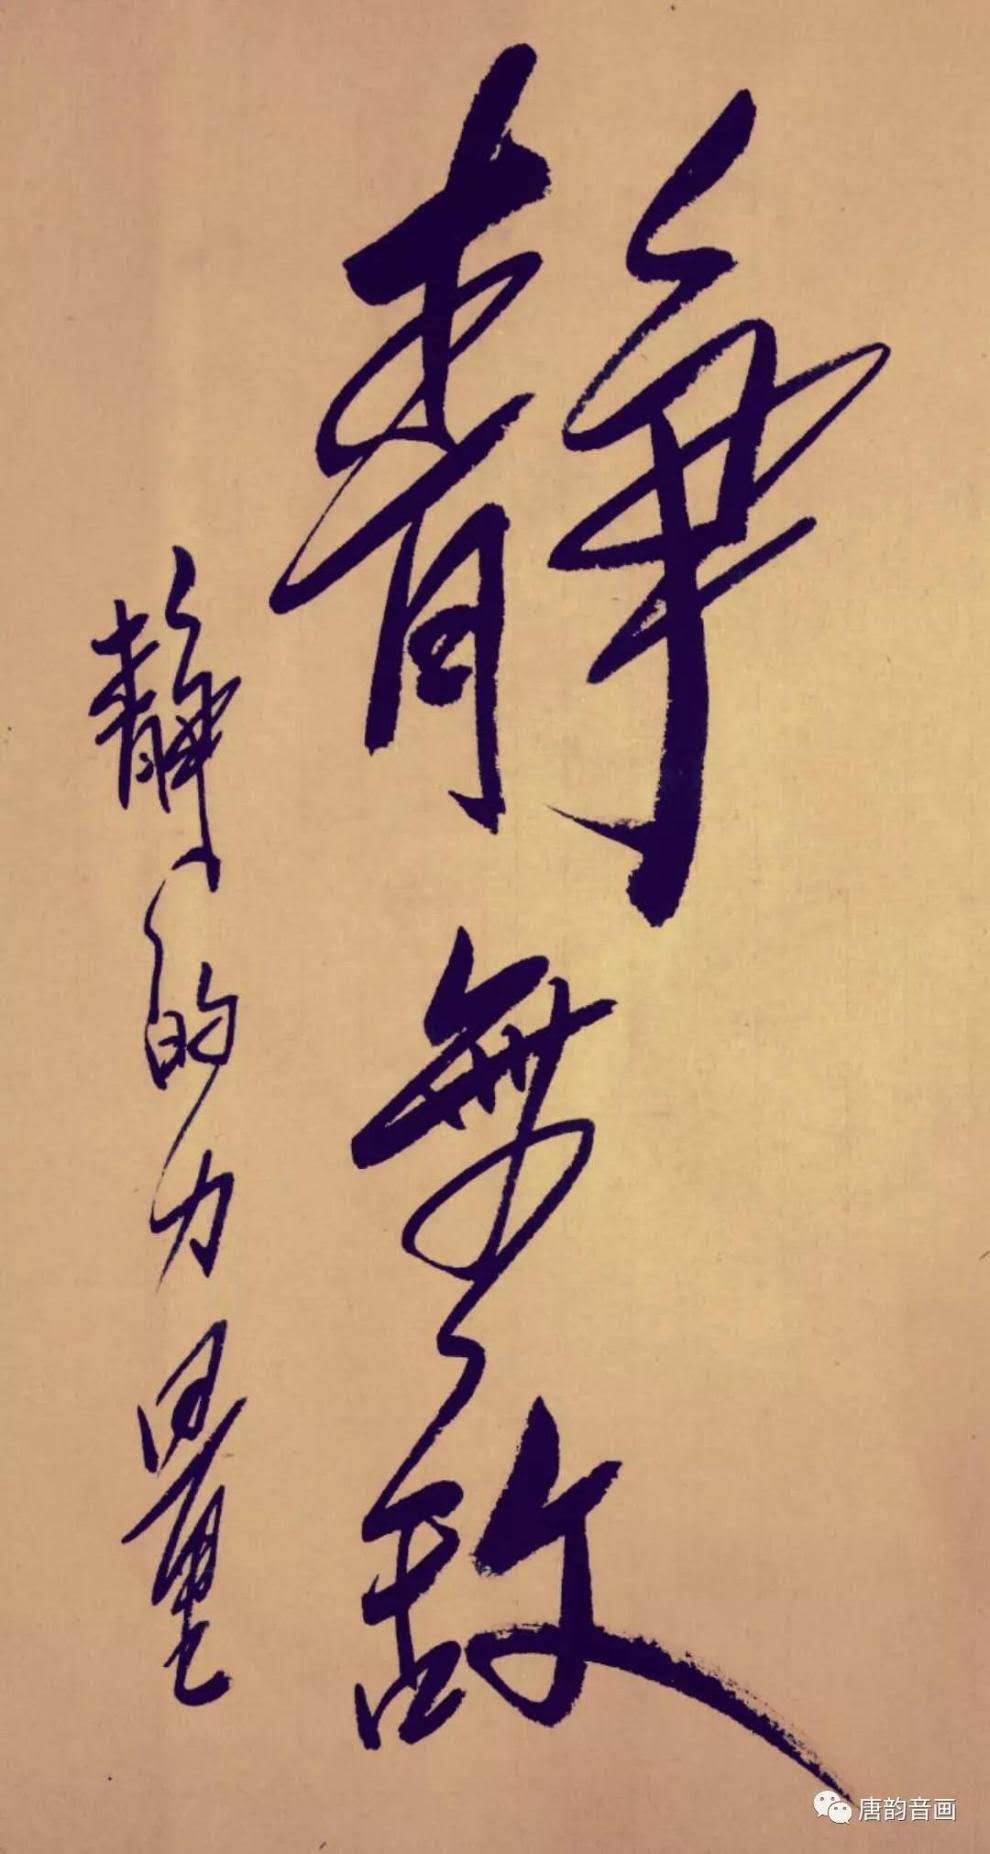 静無敌
静的力量
唐韵音画